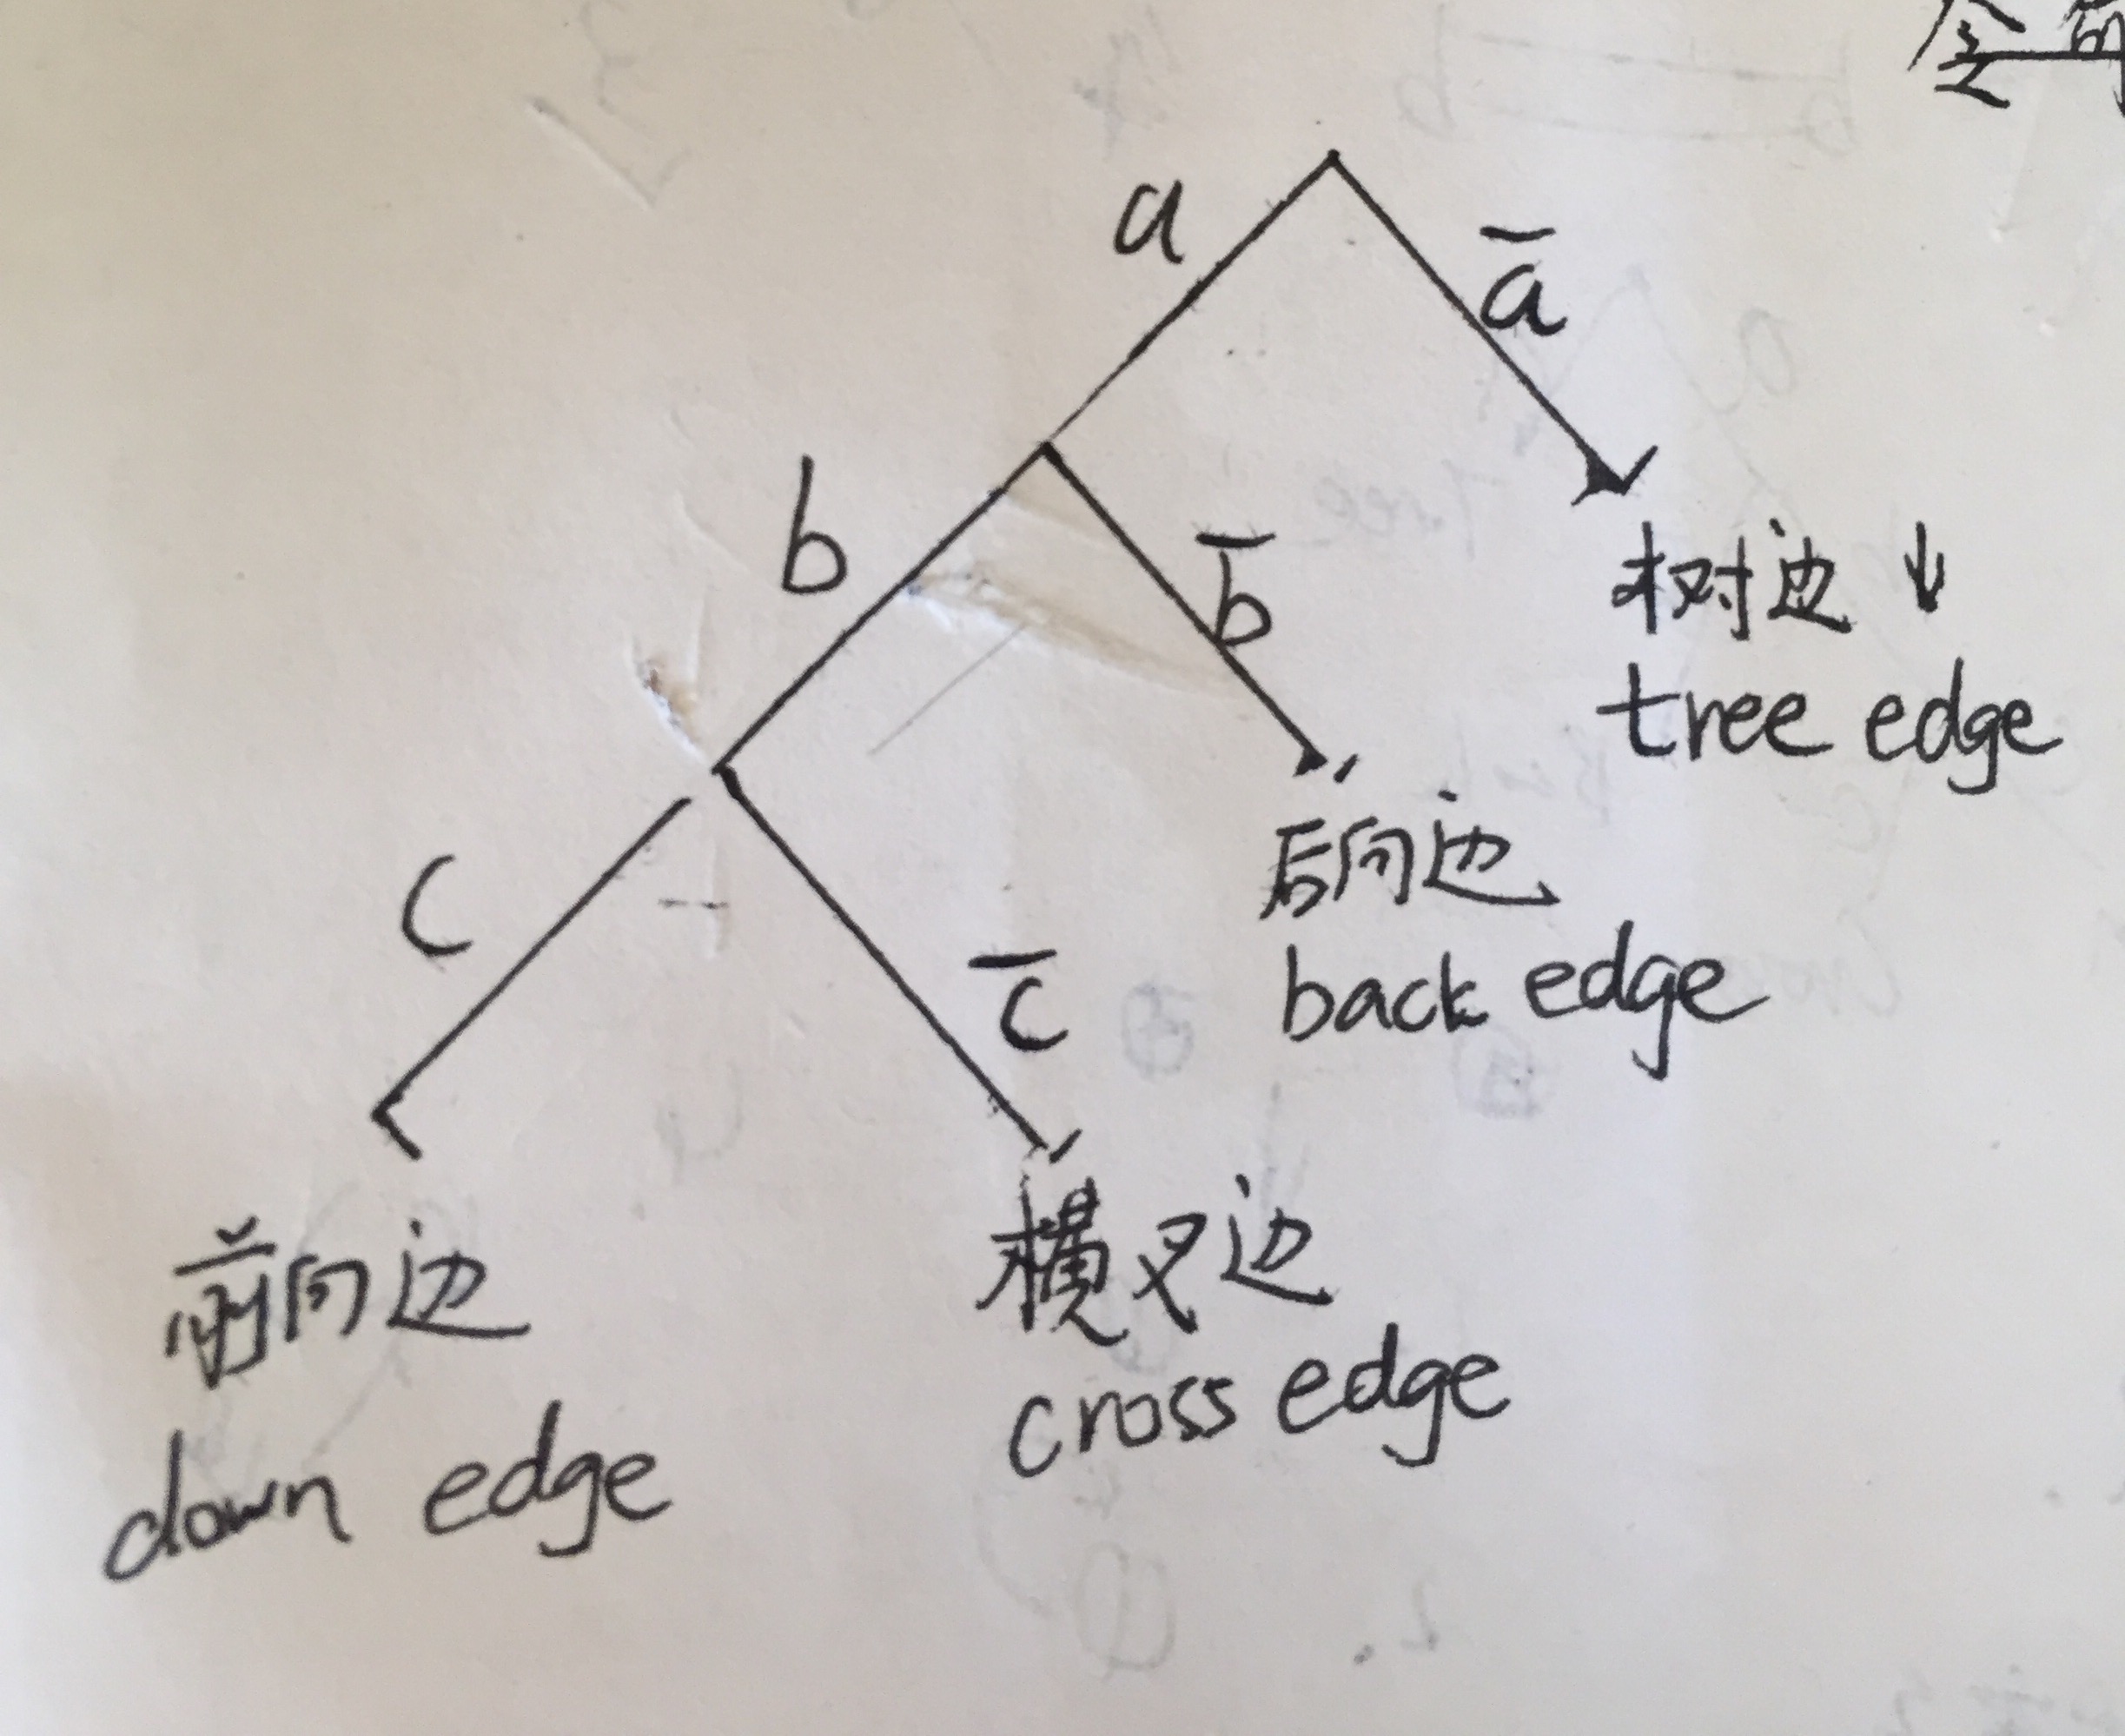 a
ā
b
b̄
树边 ↓
tree edge
c
c̄
后向边
back edge
前向边
down edge
横叉边
cross edge